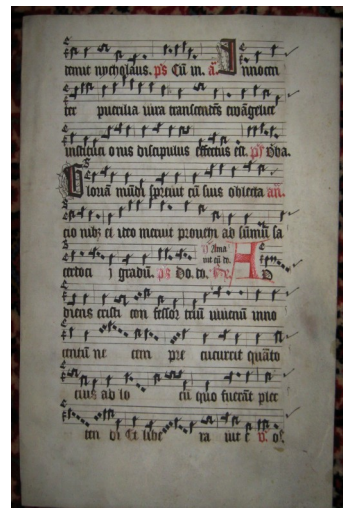 temit nycholaus. ps Cū in. a. Innocen
ter puerilia iura transcendēs ewāgelice
instituci onis discipulus effectus est. ps Dña.
Gloriā mūdi sprevit cū suis oblecta an.
cio nibz et ideo meruit provehi ad sūmū sa
cerdoci i gradū. ps Dō. do.
Ama
vit eū do.
A D
diens cristi con fessor triū iuvenū inno
centiū ne cem pre cucurrit quāto
cius ad lo cū quo fuerāt plec
ten di Et libe ra vit e